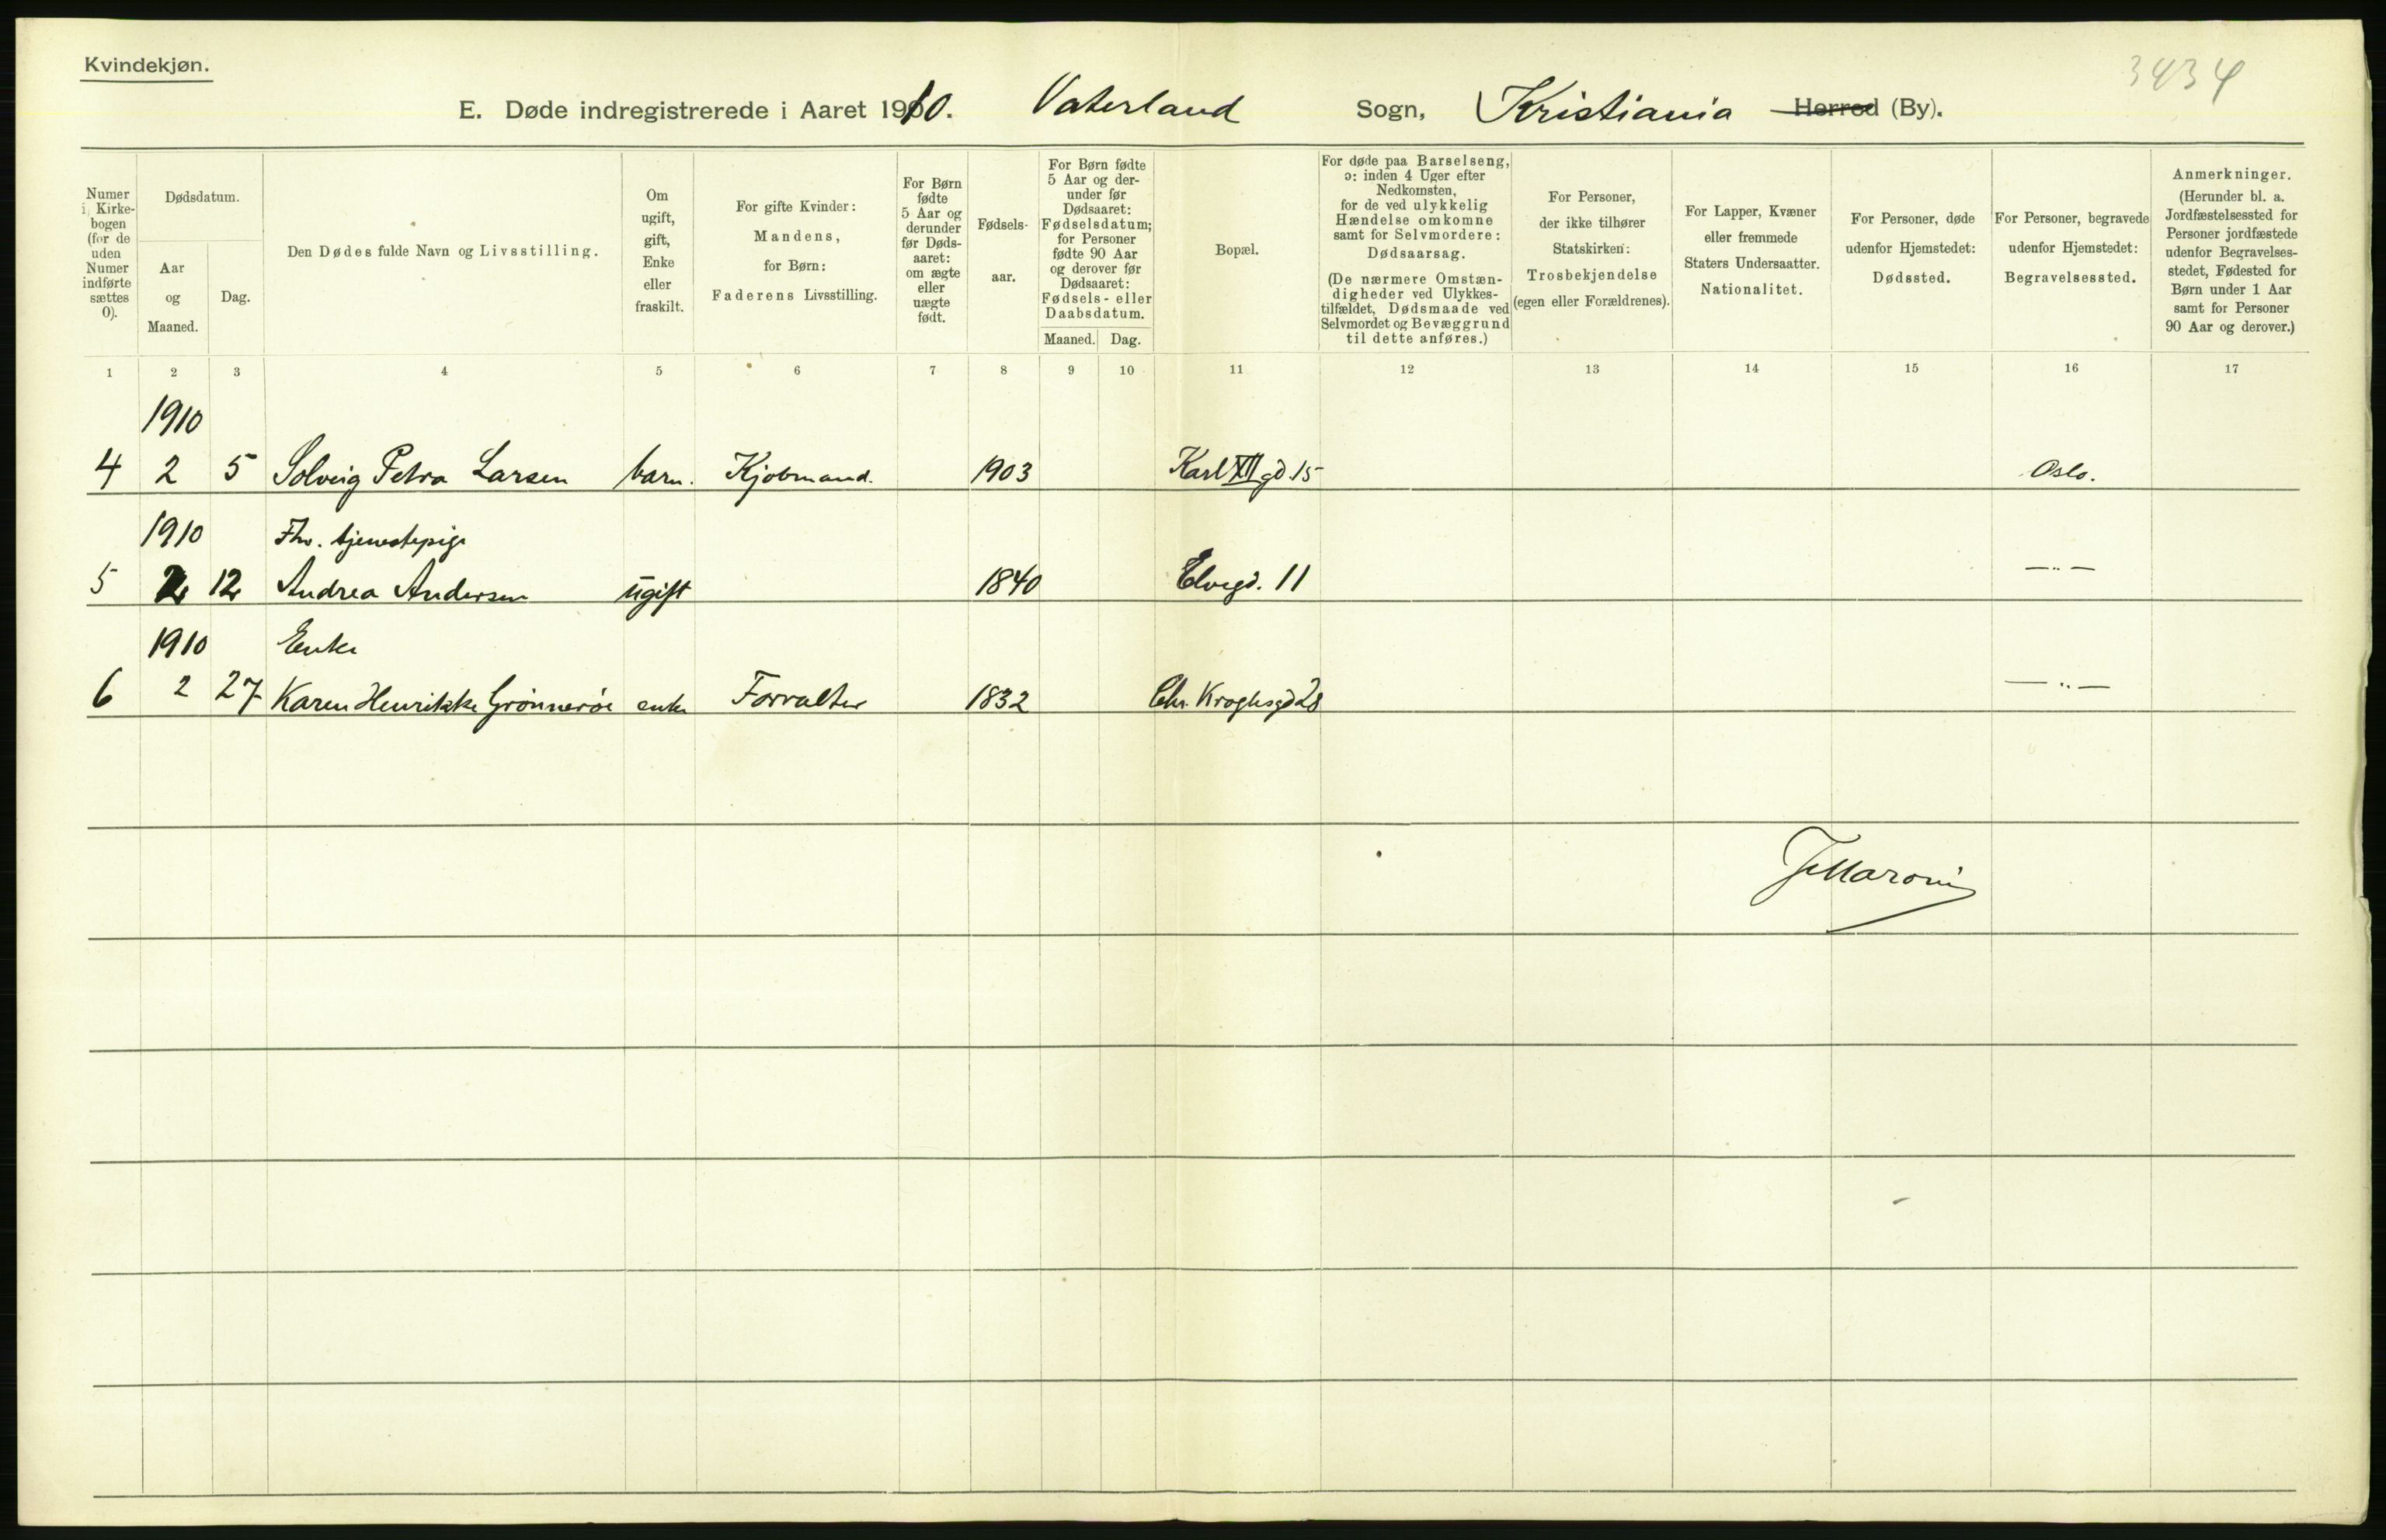 Kvindekjøn.
3434
E. Døde indregistrerede i Aaret 1910. Vaterland Sogn, Kristiania Herred (By).
Numer i Kirkebogen (for de uden Numer indførte sættes 0).
Dødsdatum.
Aar og Maaned.
Dag.
Den Dødes fulde Navn og Livsstilling.
Om ugift, gift, Enke eller fraskilt.
For gifte Kvinder: Mandens, for Børn: Faderens Livsstilling.
For Børn fødte 5 Aar og derunder før Dødsaaret: om ægte eller uægte født.
Fødselsaar.
For Børn fødte 5 Aar og derunder før Dødsaaret: Fødselsdatum; for Personer fødte 90 Aar og derover før Dødsaaret: Fødsels- eller Daabsdatum.
Maaned. Dag.
Bopæl.
For døde paa Barselseng, ɔ: inden 4 Uger efter Nedkomsten, for de ved ulykkelig Hændelse omkomne samt for Selvmordere: Dødsaarsag. (De nærmere Omstændigheder ved Ulykkestilfældet, Dødsmaade ved Selvmordet og Bevæggrund til dette anføres.)
For Personer, der ikke tilhører Statskirken: Trosbekjendelse (egen eller Forældrenes).
For Lapper, Kvæner eller fremmede Staters Undersaatter. Nationalitet.
For Personer, døde udenfor Hjemstedet: Dødssted.
For Personer, begravede udenfor Hjemstedet: Begravelsessted.
Anmerkninger. (Herunder bl. a. Jordfæstelsessted for Personer jordfæstede udenfor Begravelsesstedet, Fødested for Børn under 1 Aar samt for Personer 90 Aar og derover.)
1 2 3 4 5 6 7 8 9 10 11 12 13 14 15 16 17
1910
4 2 5 Solveig Petra Larsen barn. Kjøbmand. 1903 Karl XII gd. 15 Oslo.
1910 Fhv. tjenestepige
5 2 12 Andrea Andersen ugift 1840 Elvegd. 11 — „ —
1910 Enke
6 2 27 Karen Henrikke Grönneröe enke Forvalter 1832 Chr. Kroghsgd 28 — „ —